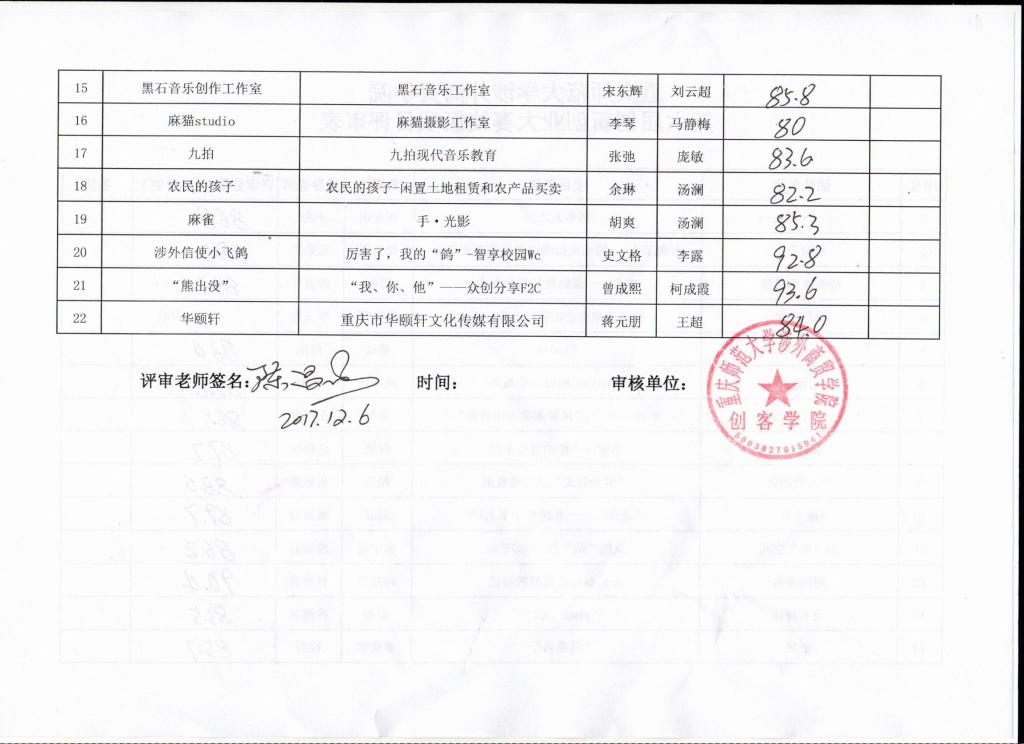 15 黑石音乐创作工作室 黑石音乐工作室 宋东辉 刘云超 85.8
16 麻猫studio 麻猫摄影工作室 李琴 马静梅 80
17 九拍 九拍现代音乐教育 张弛 庞敏 83.6
18 农民的孩子 农民的孩子-闲置土地租赁和农产品买卖 余琳 汤澜 82.2
19 麻雀 手·光影 胡爽 汤澜 85.3
20 涉外信使小飞鸽 厉害了，我的“鸽”-智享校园Wc 史文格 李露 92.8
21 “熊出没” “我、你、他”——众创分享F2C 曾成熙 柯成霞 93.6
22 华颐轩 重庆市华颐轩文化传媒有限公司 蒋元朋 王超 84.0
评审老师签名： 时间： 审核单位：
2017.12.6
重庆师范大学涉外商贸学院
创客学院